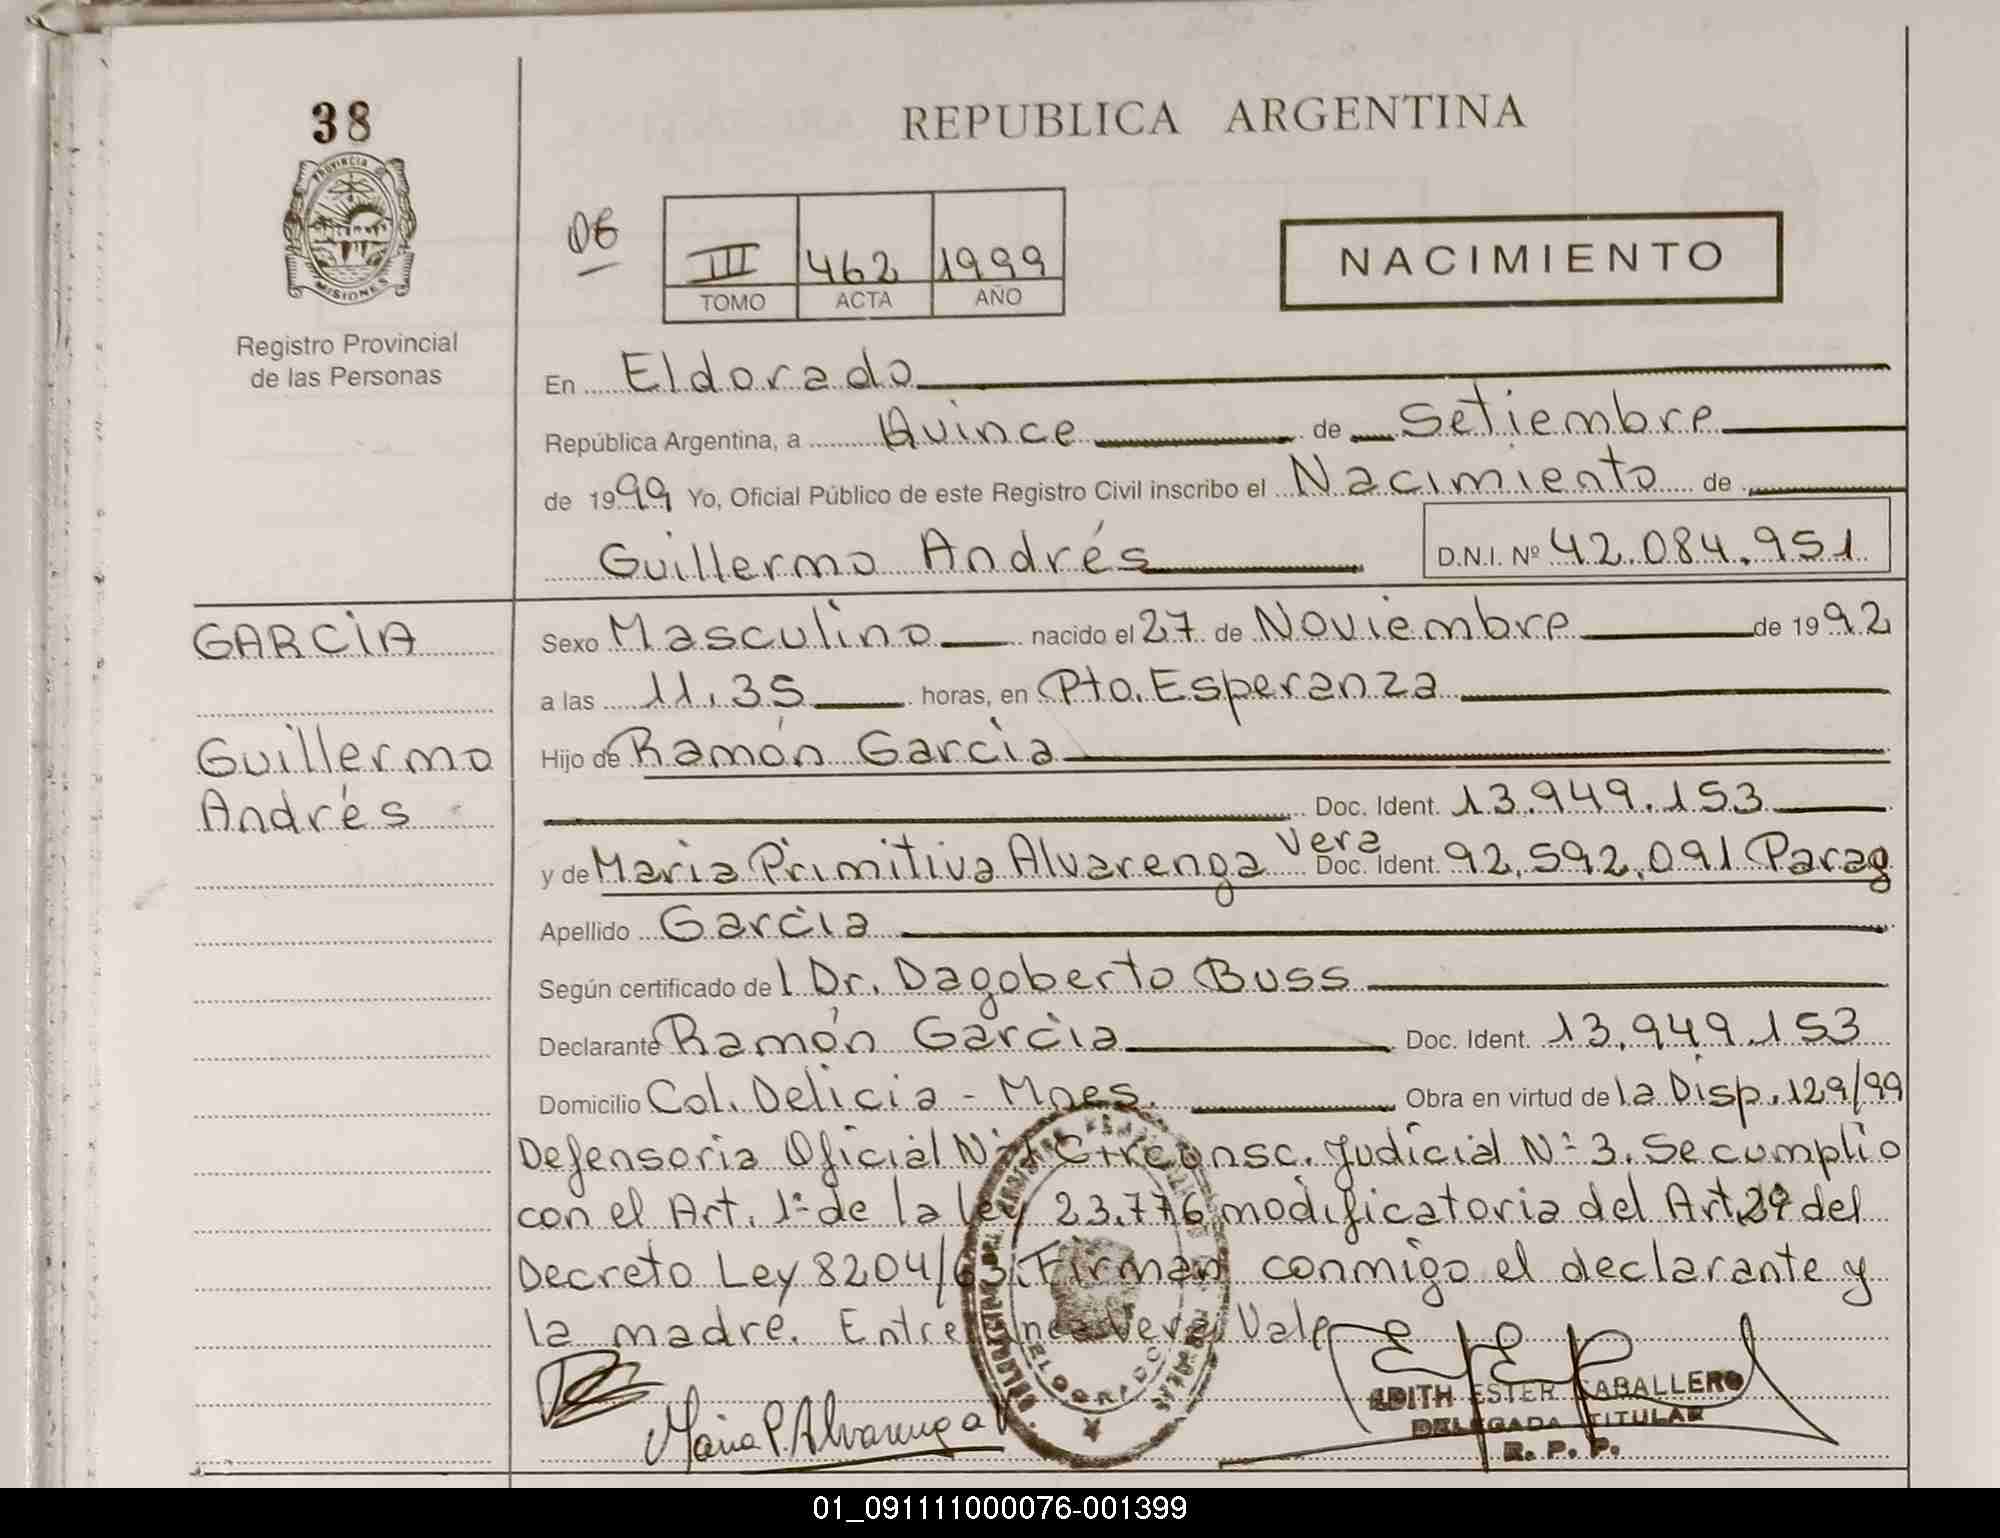 38
REPUBLICA ARGENTINA
PROVINCIA
MISIONES
Registro Provincial
de las Personas
06
III 462 1999
TOMO ACTA AÑO
NACIMIENTO
En Eldorado
República Argentina, a Quince de Setiembre
de 1999 Yo, Oficial Público de este Registro Civil inscribo el Nacimiento de
Guillermo Andrés D.N.I. Nº 42.084.951
GARCIA
Guillermo
Andrés
Sexo Masculino nacido el 27 de Noviembre de 1992
a las 11.35 horas, en Pto. Esperanza
Hijo de Ramón García
Doc. Ident. 13.949.153
y de Maria Primitiva Alvarenga Vera Doc. Ident. 92.592.091 Parag
Apellido García
Según certificado del Dr. Dagoberto Buss
Declarante Ramón García Doc. Ident. 13.949.153
Domicilio Col. Delicia - Mnes. Obra en virtud de la Disp. 129/99
Defensoria Oficial Nº 1 Circonsc. Judicial Nº 3. Se cumplio
con el Art. 1º de la ley 23.776 modificatoria del Art. 29 del
Decreto Ley 8204/63. Firman conmigo el declarante y
la madre. Entre linea Vera, Vale
Maria P. Alvarenga V
ELDORADO
EDITH ESTER CABALLERO
DELEGADA TITULAR
R. P. P.
01_091111000076-001399